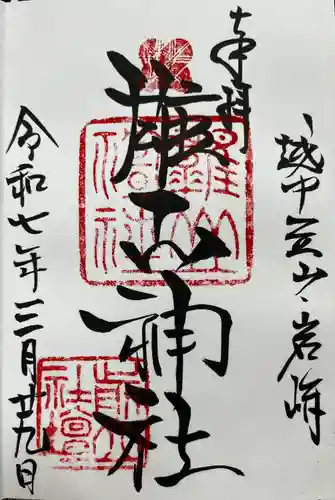 奉拝
越中立山岩峅
雄山神社
令和七年三月廿九日